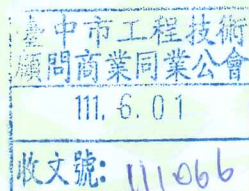 臺中市工程技術
顧問商業同業公會
111. 6. 01
收文號: 111066